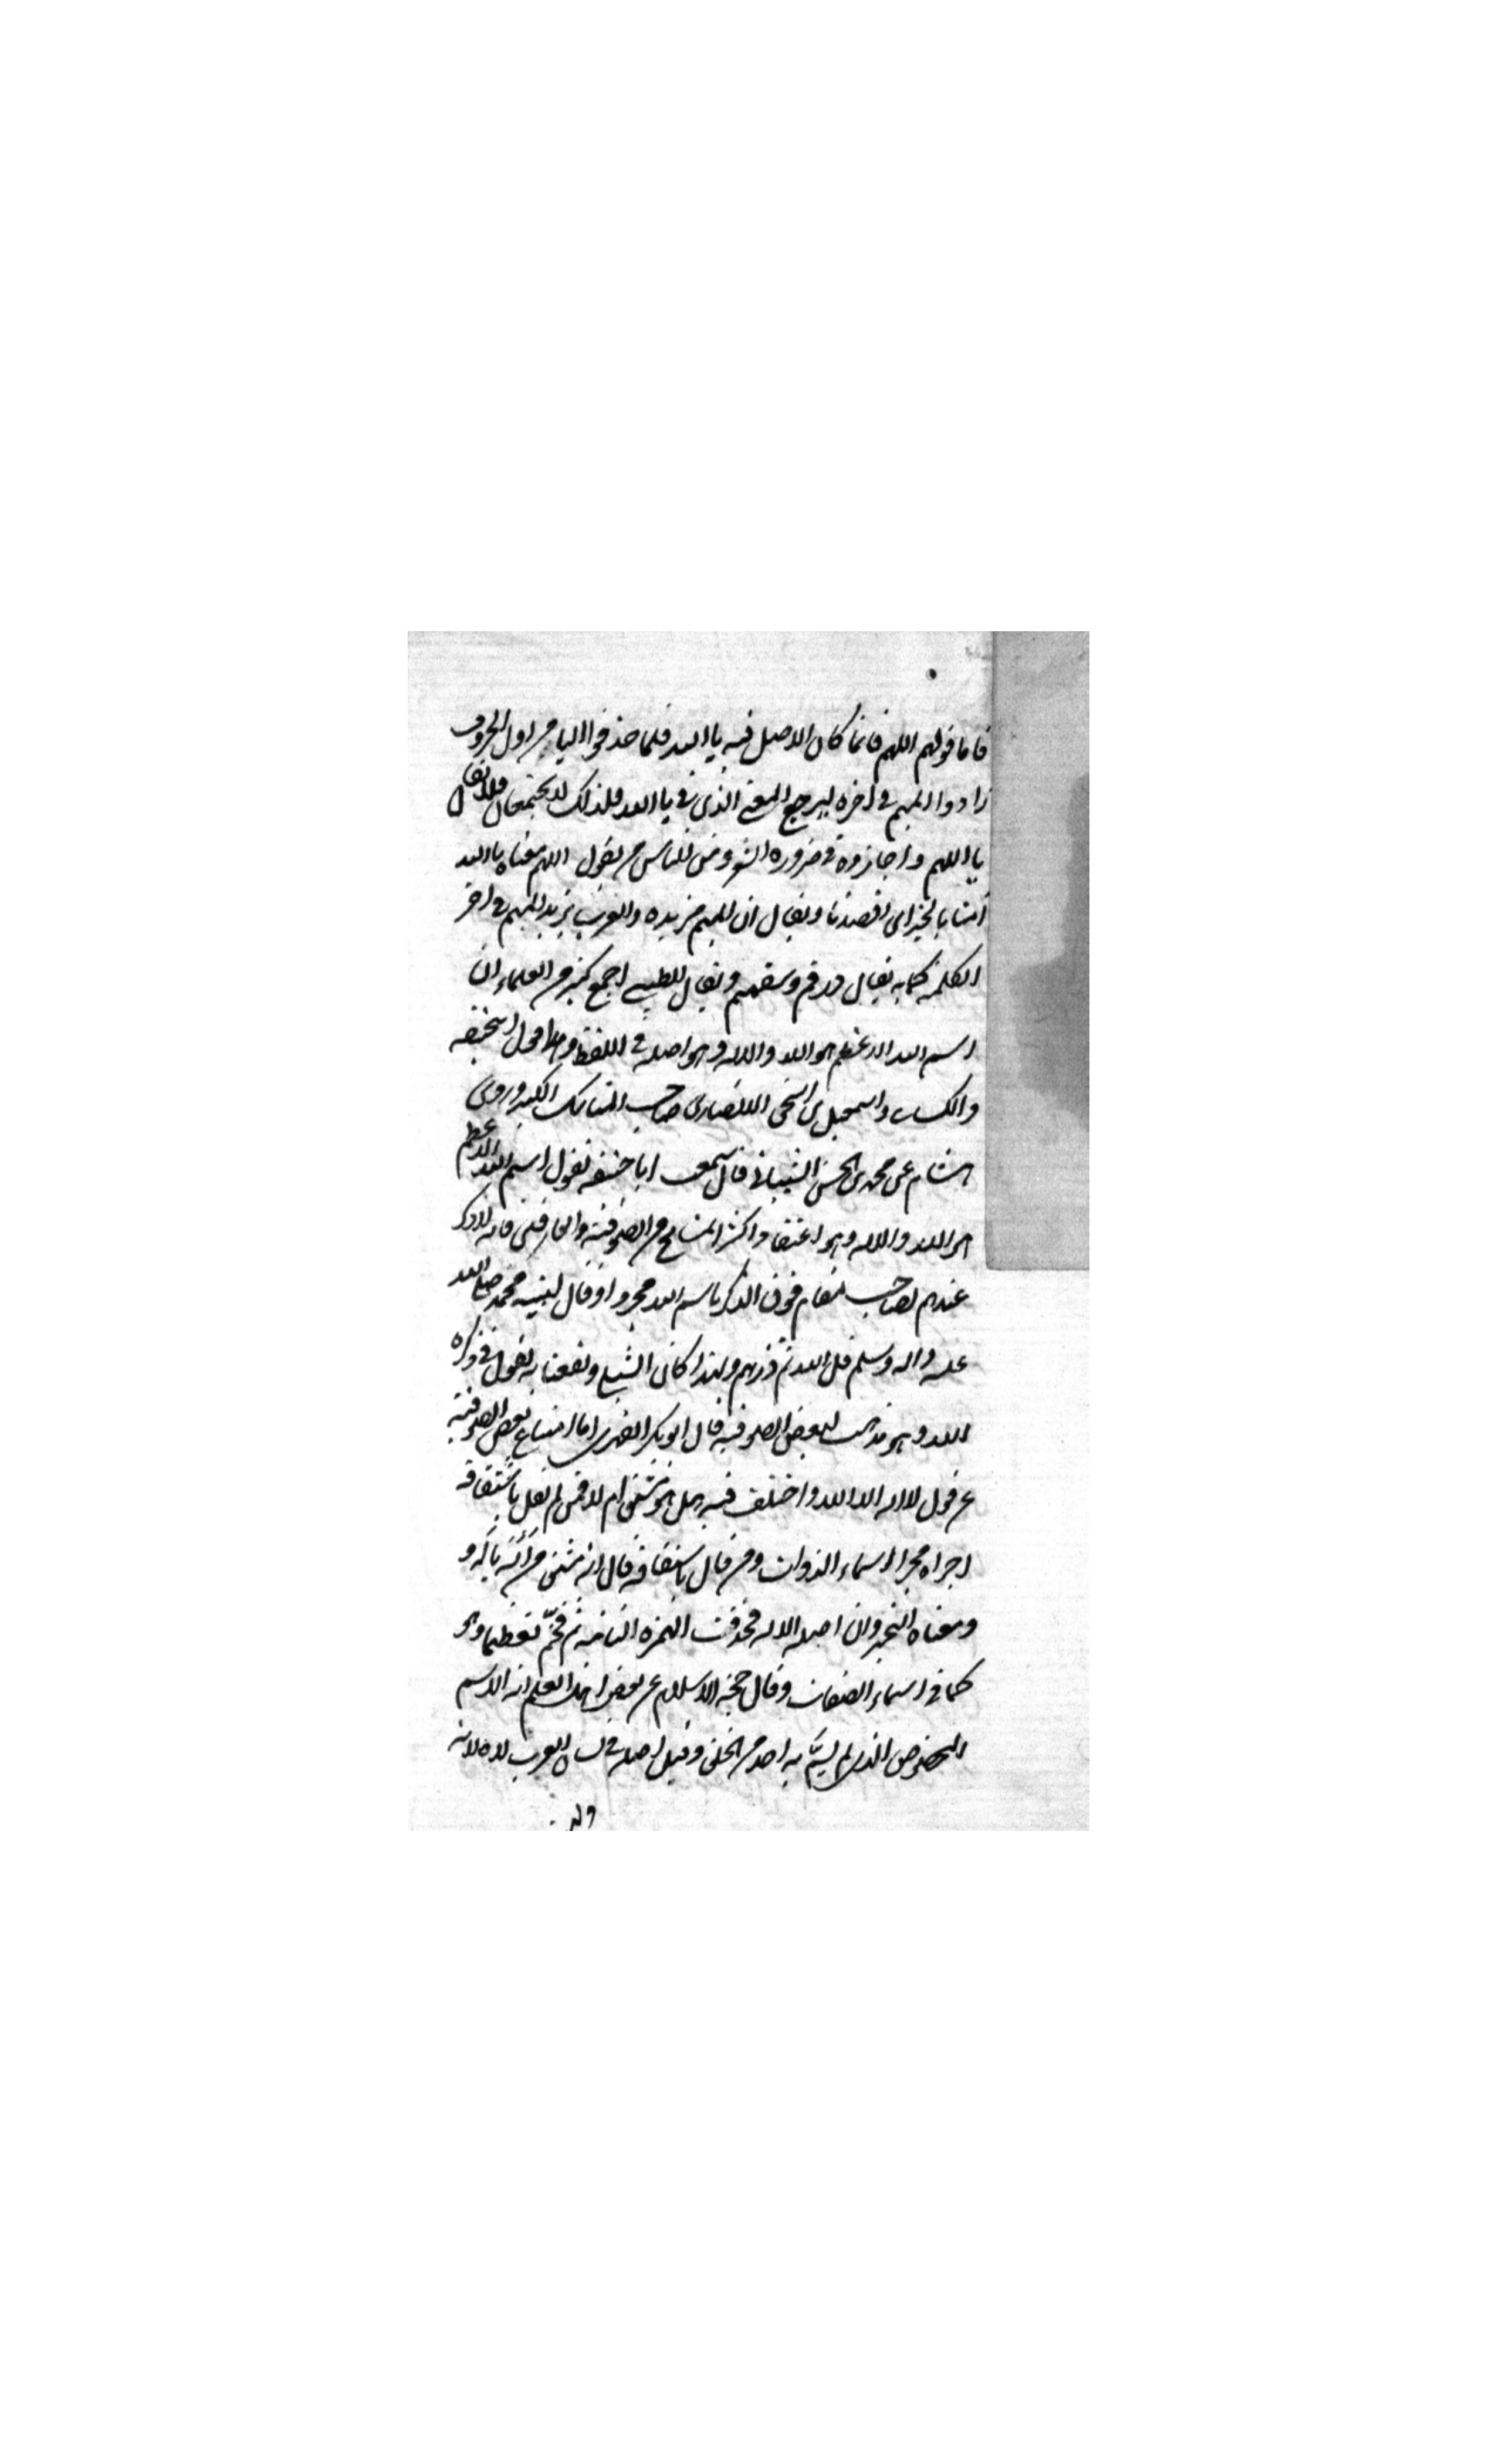 فاما قولهم اللهم فانما كان الاصل فيه يا الله فلما حذفوا اليا من اول الحروف
زادوا الميم في اخره ليرجع المعنى الذي في يا الله فلذلك لا يجتمعان فلا يقال
يا اللهم واجازوه في ضروره الشعر ومن الناس من يقول اللهم معناه يا الله
آمنا بالخير اي اقصدنا ويقال ان الميم مزيده والعرب تزيد الميم في اخر
الكلمة كما به يقال زرقم وستهم ويقال للطيبي اجمع كثير من العلماء ان
اسم الله الاعظم هو الله والاله وهو اصله في اللفظ وهذا قول ابي حنيفه
والكسا واسمعيل بن اسحق الانصاري صاحب المناسك الكبير وروى
هشام عن محمد بن الحسن الشيباني قال سمعت ابا حنيفه يقول اسم الله الاعظم
هو الله والاله وهو اعتقاد اكثر المشايخ من الصوفية والعارفين فانه لا ذكر
عندهم لصاحب مقام فوق الذكر باسم الله مجردا وقال لنبيه محمد صلى الله
عليه واله وسلم قل الله ثم ذرهم ولهذا كان الشبلي ونفعنا به يقول في ذكره
الله وهو مذهب لبعض الصوفيه قال ابو بكر الفهري اما امتناع بعض الصوفية
عن قول لا اله الا الله واختلف فيه هل هو مشتق ام لا فمن لم يقل باشتقاقه
اجراه مجرا اسماء الذوات ومن قال باشتقاقه قال انه مشتق من أَلَه يأله و
ومعناه التحير وان اصله الاله فحذفت الهمزه الثانيه ثم فخّم تعظيما وهو
كما في اسماء الصفات وقال حجة الاسلام عن بعض اهل العلم انه الاسم
المخصوص الذي لم يُسمَّ به احد من الخلق وقيل اصله في لسان العرب لاه لانه